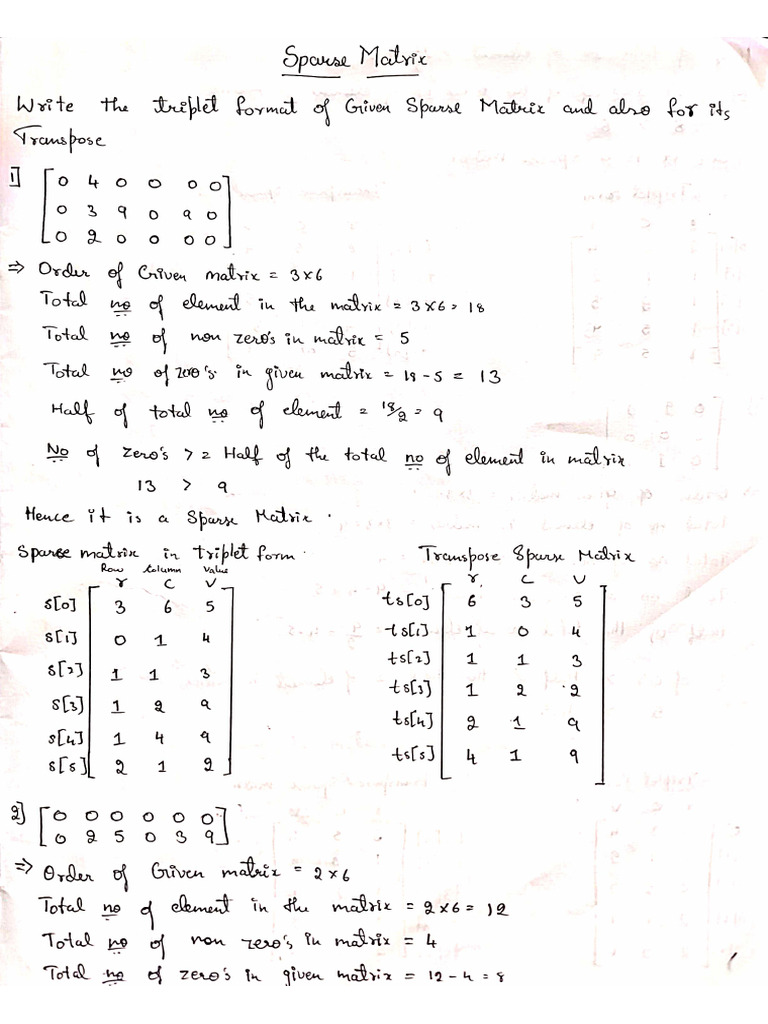 Sparse Matrix
Write the triplet format of Given Sparse Matrix and also for its
Transpose
1] [0 4 0 0 0 0]
0 3 9 0 9 0
0 2 0 0 0 0
⇒ Order of Given matrix = 3×6
Total no of element in the matrix = 3×6 = 18
Total no of non zero's in matrix = 5
Total no of zero's in given matrix = 18 - 5 = 13
Half of total no of element = 18/2 = 9
No of zero's > = Half of the total no of element in matrix
13 > 9
Hence it is a Sparse Matrix.
Sparse matrix in triplet form. Transpose Sparse Matrix
Row Column Value
r c v r, c v
s[0] 3 6 5 ts[0] 6 3 5
s[1] 0 1 4 ts[1] 1 0 4
s[2] 1 1 3 ts[2] 1 1 3
s[3] 1 2 9 ts[3] 1 2 2
s[4] 1 4 9 ts[4] 2 1 9
s[5] 2 1 2 ts[5] 4 1 9
2] [0 0 0 0 0 0]
0 2 5 0 3 9
⇒ Order of Given matrix = 2×6
Total no of element in the matrix = 2×6 = 12
Total no of non zero's in matrix = 4
Total no of zero's in given matrix = 12 - 4 = 8